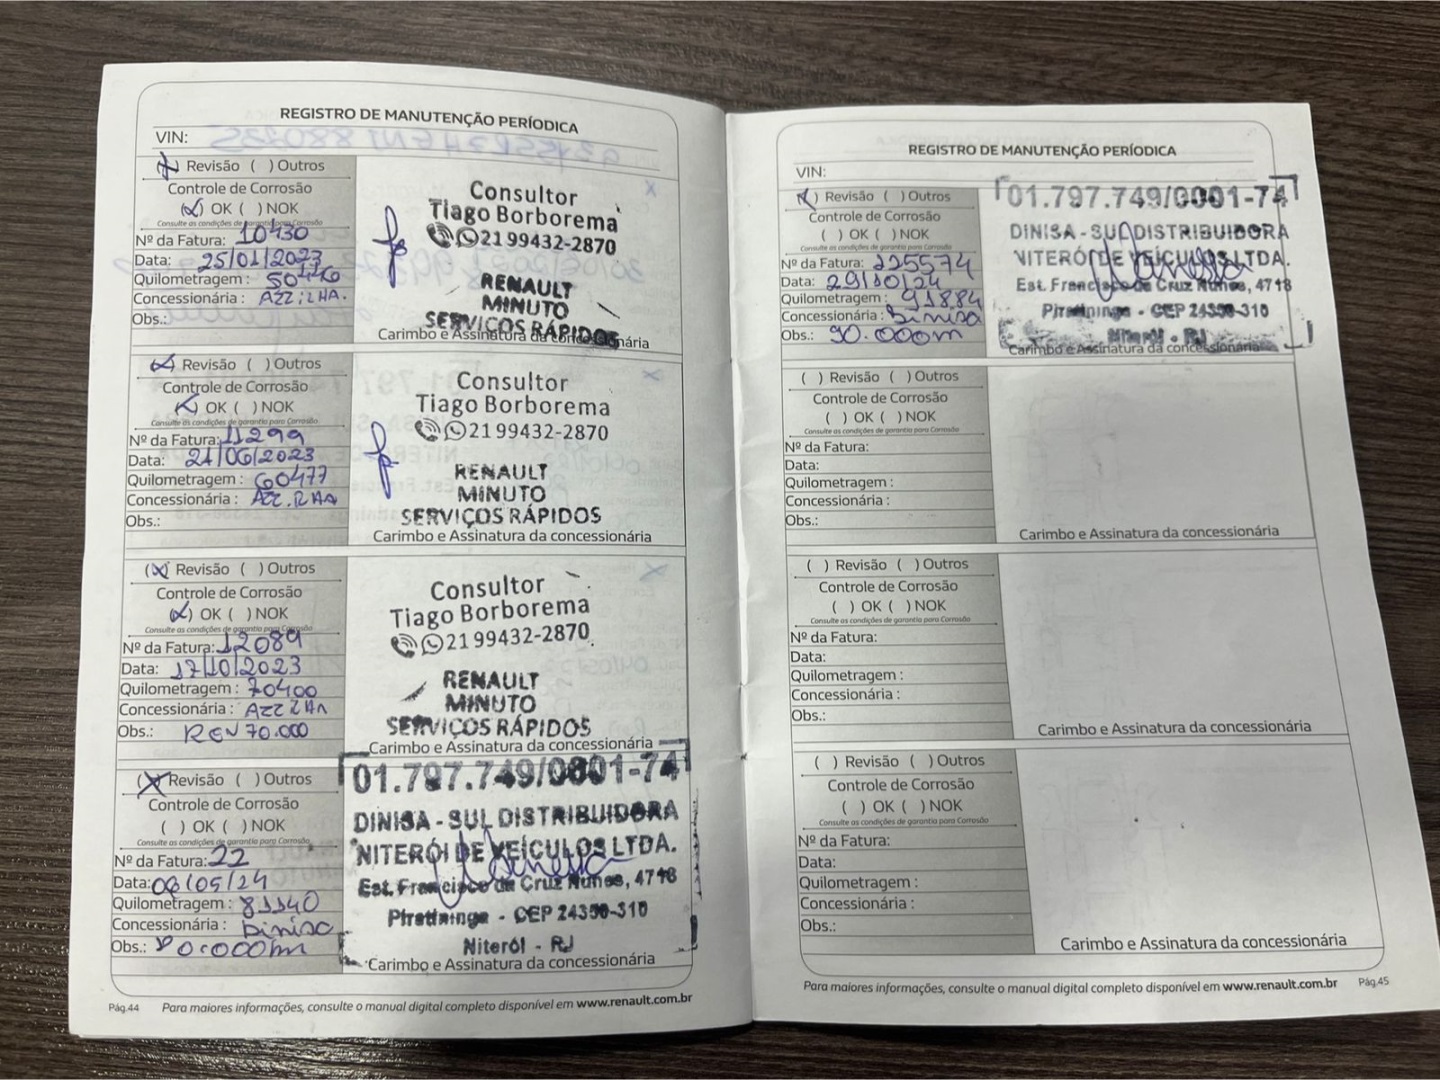 REGISTRO DE MANUTENÇÃO PERÍODICA
VIN:
(X) Revisão ( ) Outros
Controle de Corrosão
(X) OK ( ) NOK
Consulte as condições de garantia para Corrosão
Nº da Fatura: 10430
Data: 25/01/2023
Quilometragem :
Concessionária : AZZ.LHA.
Obs.:
Consultor
Tiago Borborema
21 99432-2870
RENAULT
MINUTO
SERVIÇOS RÁPIDOS
Carimbo e Assinatura da concessionária
(X) Revisão ( ) Outros
Controle de Corrosão
(X) OK ( ) NOK
Consulte as condições de garantia para Corrosão
Nº da Fatura: 11299
Data: 21/06/2023
Quilometragem : 60477
Concessionária :
Obs.:
Consultor
Tiago Borborema
21 99432-2870
RENAULT
MINUTO
SERVIÇOS RÁPIDOS
Carimbo e Assinatura da concessionária
(X) Revisão ( ) Outros
Controle de Corrosão
(X) OK ( ) NOK
Consulte as condições de garantia para Corrosão
Nº da Fatura: 12089
Data: 17/10/2023
Quilometragem : 70400
Concessionária :
Obs.: REV 70.000
Consultor
Tiago Borborema
21 99432-2870
RENAULT
MINUTO
SERVIÇOS RÁPIDOS
Carimbo e Assinatura da concessionária
(X) Revisão ( ) Outros
Controle de Corrosão
( ) OK ( ) NOK
Consulte as condições de garantia para Corrosão
Nº da Fatura: 22
Data: 06/05/24
Quilometragem : 81140
Concessionária : Dinisa
Obs.: 80.000km
01.797.749/0001-74
DINISA - SUL DISTRIBUIDORA
NITERÓI DE VEÍCULOS LTDA.
Est. Francisco da Cruz Nunes, 4718
Piratininga - CEP 24350-310
Niterói - RJ
Carimbo e Assinatura da concessionária
Pág.44 Para maiores informações, consulte o manual digital completo disponível em www.renault.com.br
REGISTRO DE MANUTENÇÃO PERÍODICA
VIN:
(X) Revisão ( ) Outros
Controle de Corrosão
( ) OK ( ) NOK
Consulte as condições de garantia para Corrosão
Nº da Fatura: 225574
Data: 29/10/24
Quilometragem : 91884
Concessionária : Dinisa
Obs.: 90.000km
01.797.749/0001-74
DINISA - SUL DISTRIBUIDORA
NITERÓI DE VEÍCULOS LTDA.
Est. Francisco da Cruz Nunes, 4718
Piratininga - CEP 24350-310
Niterói - RJ
Carimbo e Assinatura da concessionária
( ) Revisão ( ) Outros
Controle de Corrosão
( ) OK ( ) NOK
Consulte as condições de garantia para Corrosão
Nº da Fatura:
Data:
Quilometragem :
Concessionária :
Obs.:
Carimbo e Assinatura da concessionária
( ) Revisão ( ) Outros
Controle de Corrosão
( ) OK ( ) NOK
Consulte as condições de garantia para Corrosão
Nº da Fatura:
Data:
Quilometragem :
Concessionária :
Obs.:
Carimbo e Assinatura da concessionária
( ) Revisão ( ) Outros
Controle de Corrosão
( ) OK ( ) NOK
Consulte as condições de garantia para Corrosão
Nº da Fatura:
Data:
Quilometragem :
Concessionária :
Obs.:
Carimbo e Assinatura da concessionária
Para maiores informações, consulte o manual digital completo disponível em www.renault.com.br Pág.45